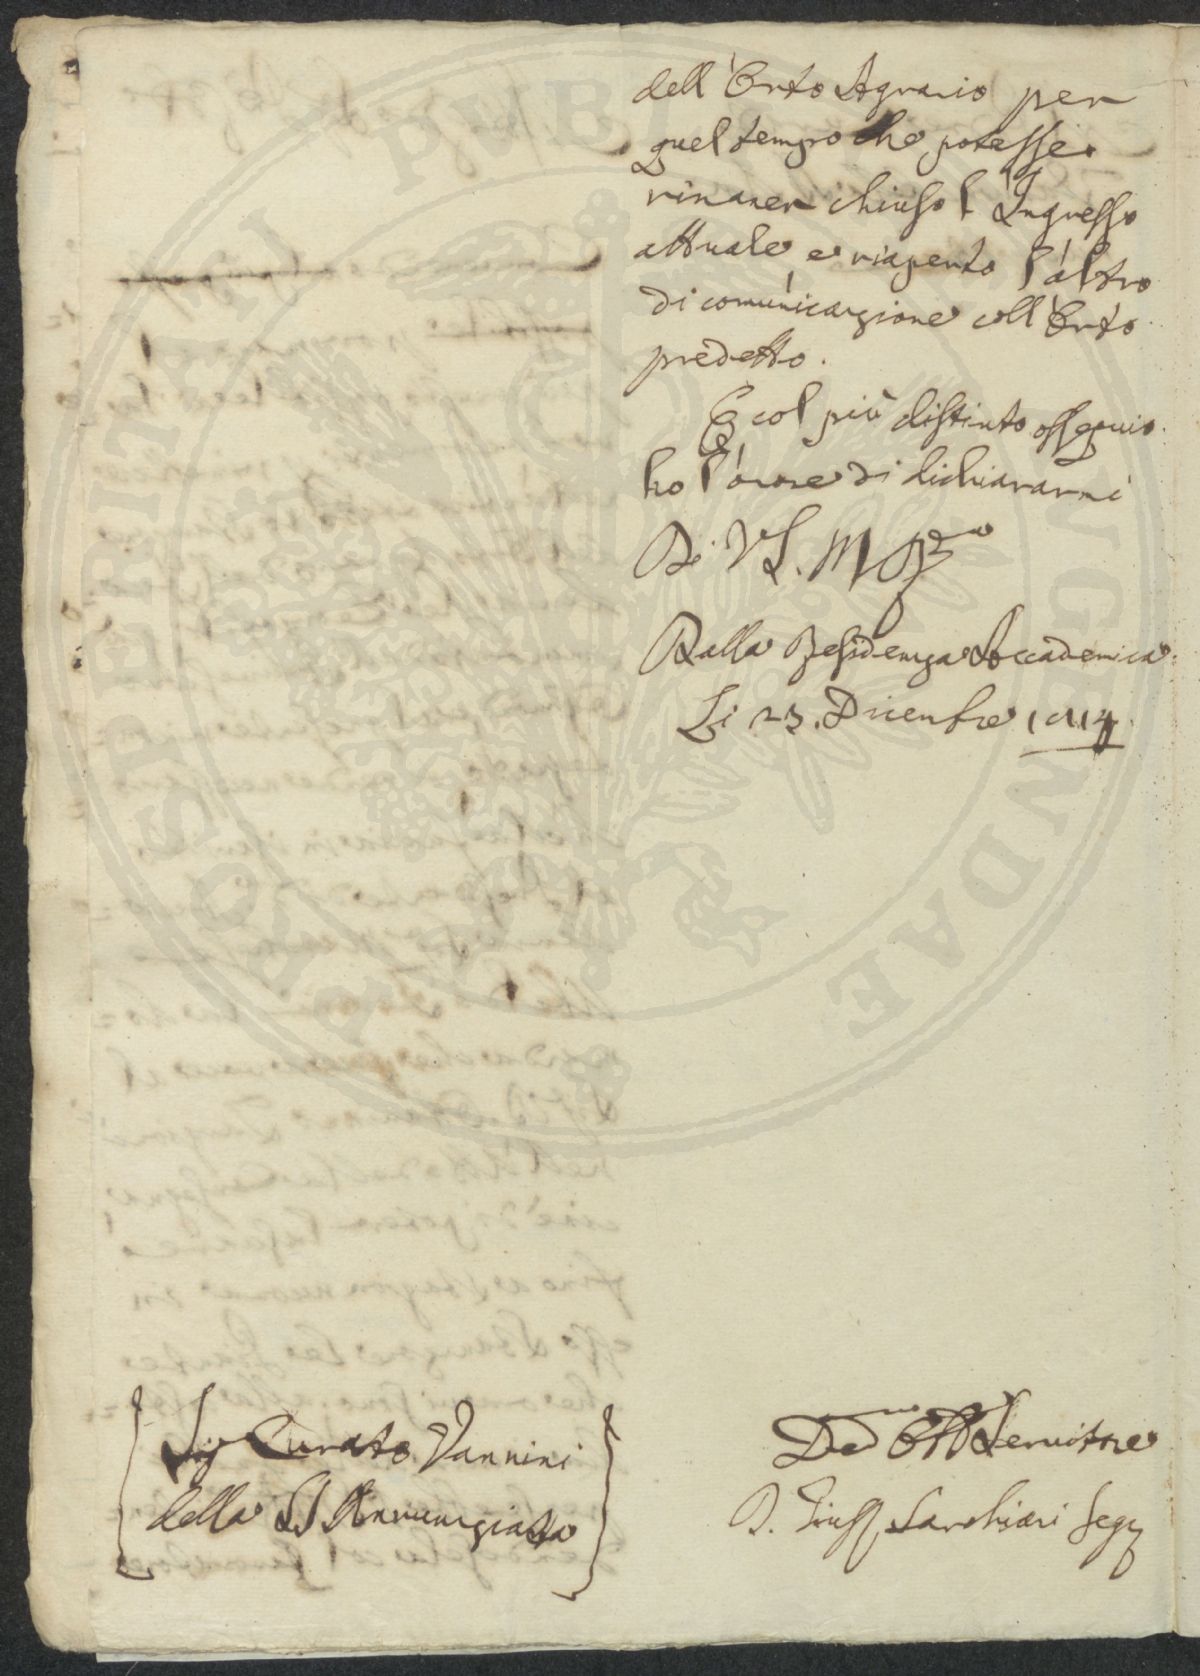 dell'Orto Agrario per
quel tempo che potesse
rimaner chiuso l'Ingresso
attuale, e riaperto l'altro
di comunicazione coll'Orto
predetto.
E col più distinto ossequio
ho l'onore di dichiararmi
Di VS. M
Dalla Residenza Accademica
Li 23. Dicembre 1814
Sig Curato Vannini
della SS Annunziata
Dev Obb Servitore
D. Giusp Sarchiani Segr
PROSPERITATI PVBLICAE AVGENDAE